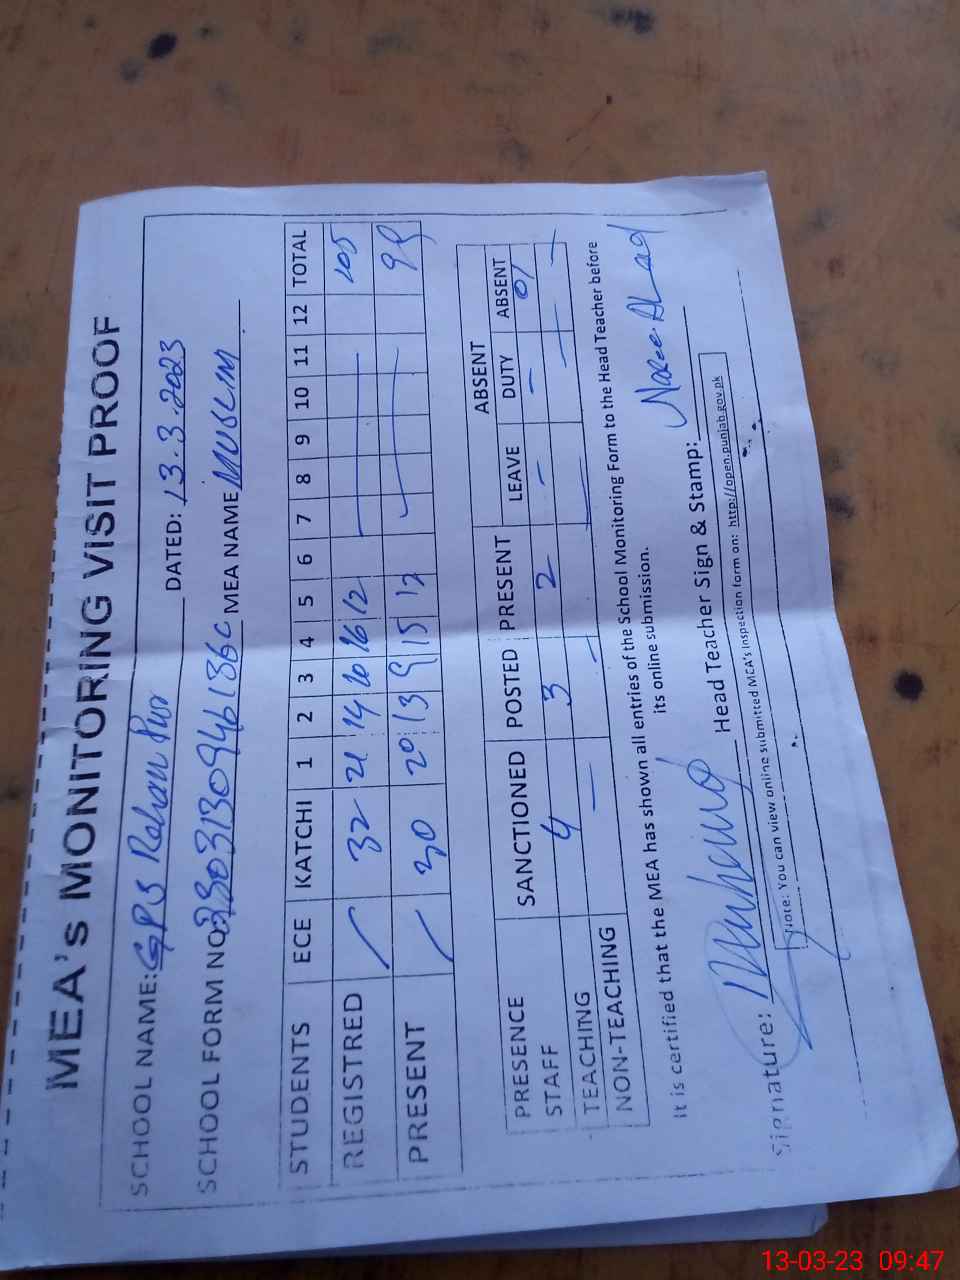 MEA's MONITORING VISIT PROOF
SCHOOL NAME: GPS Rohan Pur DATED: 13.3.2023
SCHOOL FORM NO MEA NAME MUSLIM
STUDENTS ECE KATCHI 1 2 3 4 5 6 7 8 9 10 11 12 TOTAL
REGISTRED 32 21 14 10 16 12 105
PRESENT 30 20 13 9 15 12 99
PRESENCE SANCTIONED POSTED PRESENT ABSENT
STAFF LEAVE DUTY ABSENT
4 3 2 - - 01
TEACHING
NON-TEACHING
It is certified that the MEA has shown all entries of the School Monitoring Form to the Head Teacher before
its online submission.
Signature: Head Teacher Sign & Stamp:
Note: You can view online submitted MCA's Inspection form on: http://open.punjab.gov.pk
13-03-23 09:47